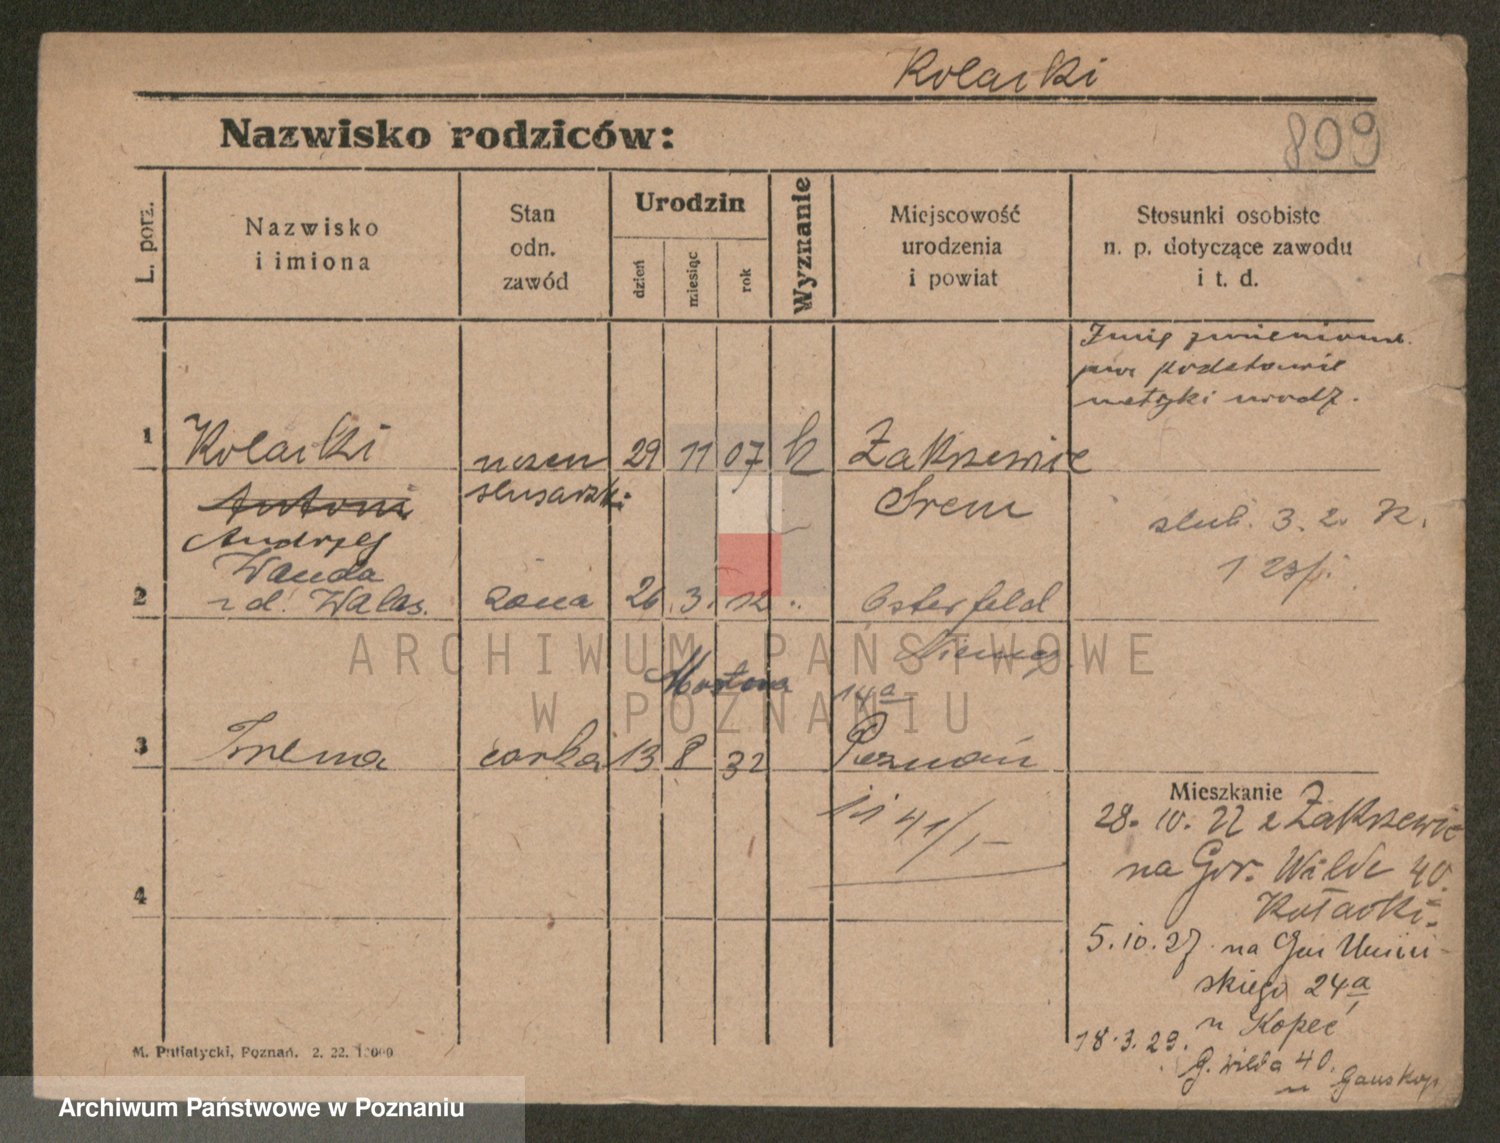 Kolaski
Nazwisko rodziców:
809
L. porz.
Nazwisko
i imiona
Stan
odn.
zawód
Urodzin
dzień
miesiąc
rok
Wyznanie
Miejscowość
urodzenia
i powiat
Stosunki osobiste
n. p. dotyczące zawodu
i t. d.
Imię zmieniono
na podstawie
metryki urodz.
1 Kolaski uczen 29 11 07 k Zakrzewice
Antoni ślusarski Śrem
Andrzej
ślub. 3. 2. 32.
Wanda
2 z d. Walas. żona 26. 3. 12 .. Osterfeld
Niemcy
14a
3 Irena córka 13 8 32 Poznań
Mieszkanie
28. 10. 22 z Zakrzewic
41/1-
na Gór. Wilde 40.
4
5. 10. 27 na
skiego 24a
u Kopeć
18. 3. 29.
G. Wilda 40.
u
M. Putiatycki, Poznań. 2. 22. 15000
ARCHIWUM PAŃSTWOWE
W POZNANIU
Archiwum Państwowe w Poznaniu